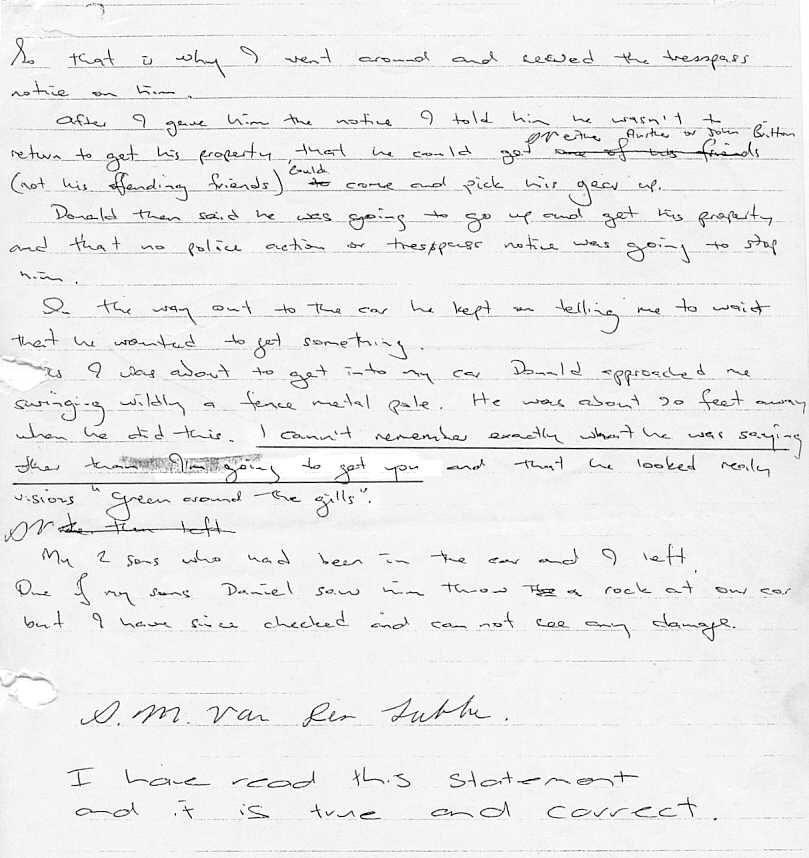 So that is why I went around and served the tresspass
notice on him.
After I gave him the notice I told him he wasn't to
return to get his property, that he could get either Arther or John Britton
one of his friends
(not his offending friends) could to come and pick his gear up.
Donald then said he was going to go up and get his property
and that no police action or tresspass notice was going to stop
him.
On the way out to the car he kept on telling me to waist
that he wanted to get something.
As I was about to get into my car Donald approached me
swinging wildly a fence metal pole. He was about 20 feet away
when he did this. I cann't remember exactly what he was saying
ther than I'm going to get you and that he looked really
visious "Green around the gills".
then left
My 2 sons who had been in the car and I left.
One of my sons Daniel saw him throw the a rock at our car
but I have since checked and can not see any damage.
S. M. Van Der Lubbe.
I have read this statement
and it is true and correct.